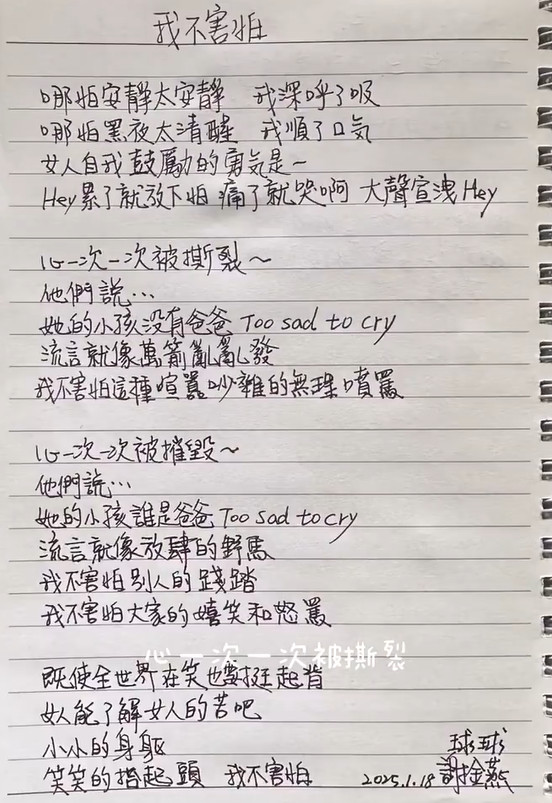 我不害怕
哪怕安靜太安靜 我深呼了吸
哪怕黑夜太清醒 我順了口気
女人自我鼓勵的勇気是~
Hey累了就放下怕 痛了就哭啊 大聲宣洩Hey
心一次一次被撕裂~
他們說…
她的小孩沒有爸爸 Too sad to cry
流言就像萬箭亂亂發
我不害怕這種喧囂吵雜的無理噴罵
心一次一次被摧毀~
他們說…
她的小孩誰是爸爸 Too sad to cry
流言就像放肆的野馬
我不害怕別人的踐踏
我不害怕大家的嬉笑和怒罵
心一次一次被撕裂
既使全世界在笑也要挺起背
女人能了解女人的苦吧
小小的身軀
笑笑的抬起頭 我不害怕
球球
2025.1.18 謝金燕